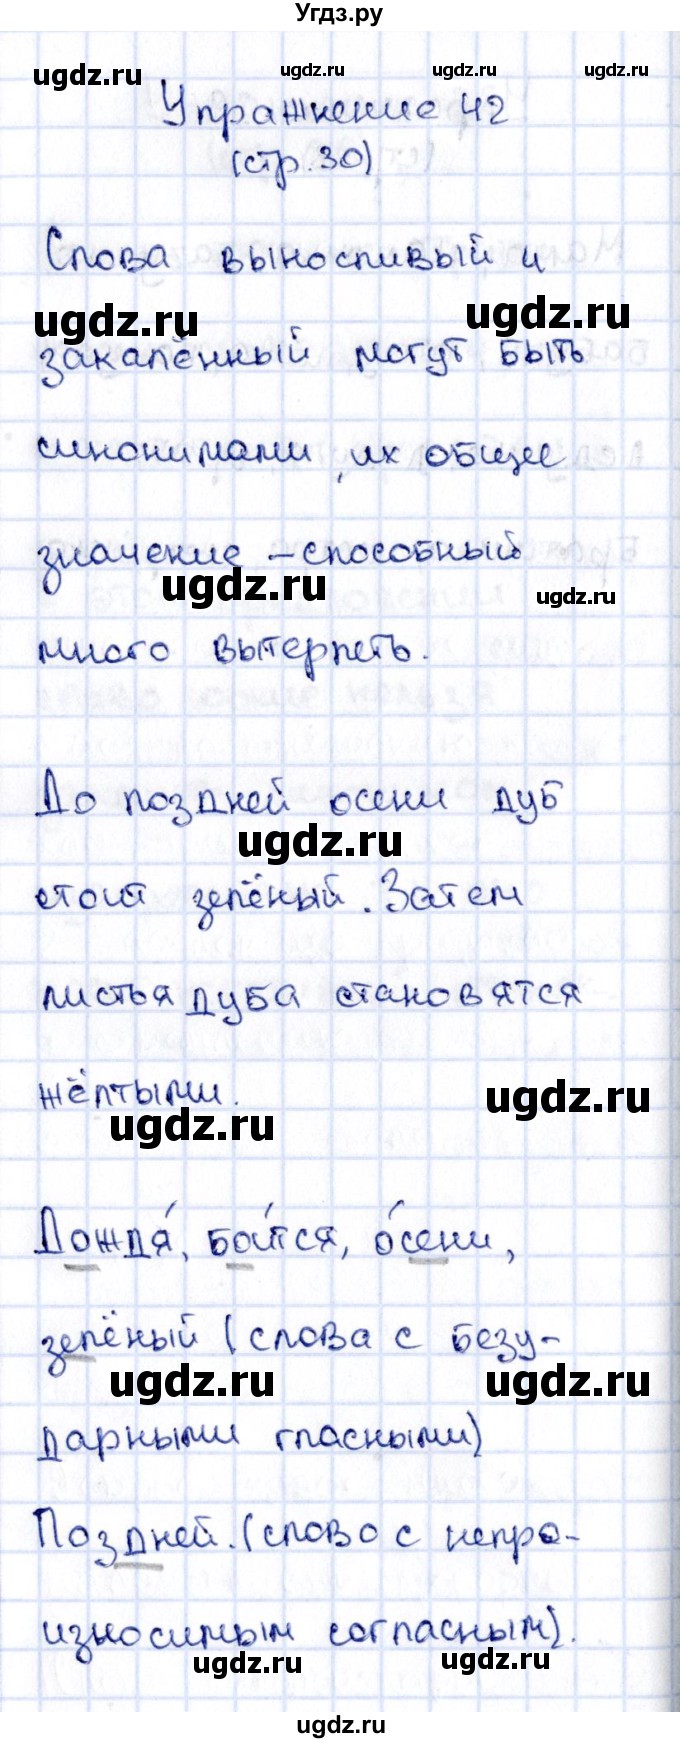 Угдз.ру
ugdz.ru ugdz.ru ugdz.ru ugdz.ru
Упражнение 42
(стр. 30)
Слова выносливый и
ugdz.ru ugdz.ru
закалённый могут быть
синонимами, их общее
значение – способный
ugdz.ru ugdz.ru
много вытерпеть.
До поздней осени дуб
ugdz.ru
стоит зелёный. Затем
листья дуба становятся
жёлтыми.
ugdz.ru ugdz.ru
Дождя́, бои́тся, о́сени,
зелёный (слова с безу-
ugdz.ru ugdz.ru
дарными гласными)
Поздней. (слово с непро-
износимым согласным).
ugdz.ru ugdz.ru
ugdz.ru